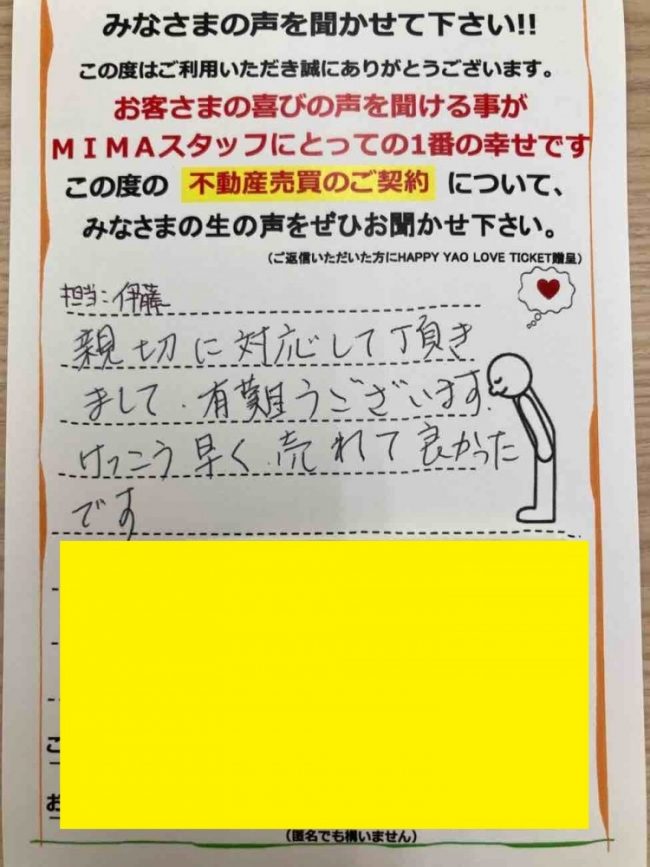 みなさまの声を聞かせて下さい!!
この度はご利用いただき誠にありがとうございます。
お客さまの喜びの声を聞ける事が
MIMAスタッフにとっての1番の幸せです
この度の 不動産売買のご契約 について、
みなさまの生の声をぜひお聞かせ下さい。
(ご返信いただいた方にHAPPY YAO LOVE TICKET贈呈)
担当:伊藤
親切に対応して頂き
まして、有難うございます。
けっこう早く売れて良かった
です
こ
お
(匿名でも構いません)